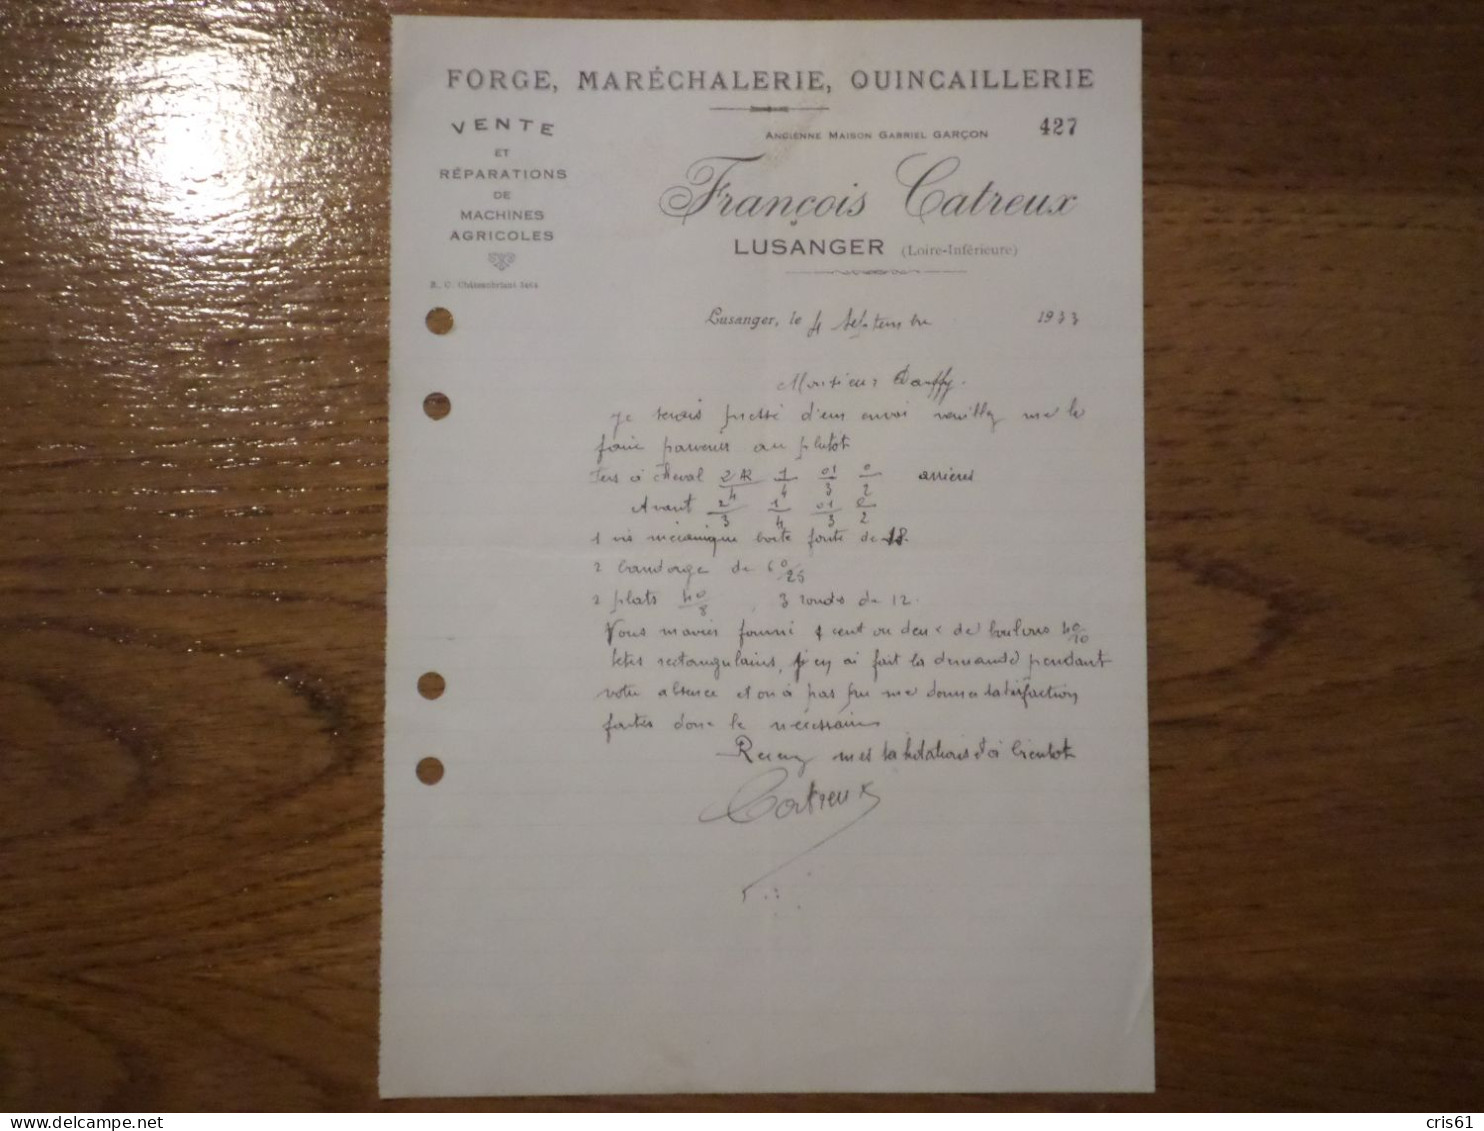 FORGE, MARÉCHALERIE, QUINCAILLERIE
VENTE
ET
RÉPARATIONS
DE
MACHINES
AGRICOLES
R. C. Châteaubriant
ANCIENNE MAISON GABRIEL GARÇON
427
François Catreux
LUSANGER (Loire-Inférieure)
Lusanger, le 4 septembre 1933
Monsieur
Je serais pressé d'un envoi veuillez me le
faire parvenir au plutot
fers à cheval 2 AR/4 1/4 01/3 0/2 arrières
Avant 2/3 1/4 01/3 0/2
1 vis mécanique boite fonte de 18
2 bandage de 60/25
2 plats 40/8 3 ronds de 12
Vous maviez fourni 1 cent ou deux de boulons 40/10
tetes rectangulaires, j'en ai fait la demande pendant
votre absence et on à pas pu me donner satisfaction
faites donc le nécessaire
Recevez mes salutations et à bientot
Catreux
cris61